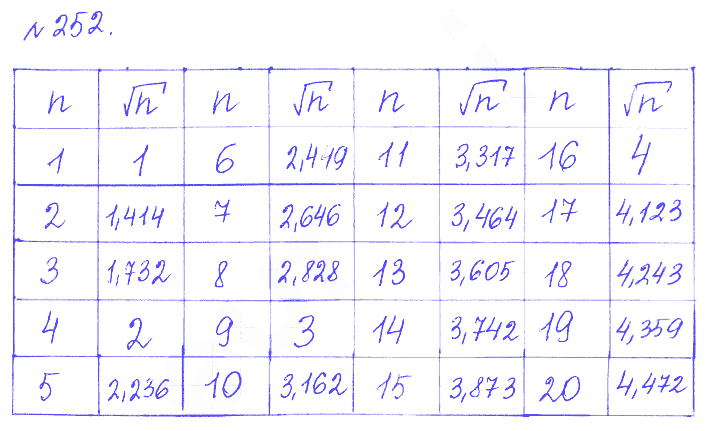 №252.
n √n n √n n √n n √n
1 1 6 2,449 11 3,317 16 4
2 1,414 7 2,646 12 3,464 17 4,123
3 1,732 8 2,828 13 3,605 18 4,243
4 2 9 3 14 3,742 19 4,359
5 2,236 10 3,162 15 3,873 20 4,472